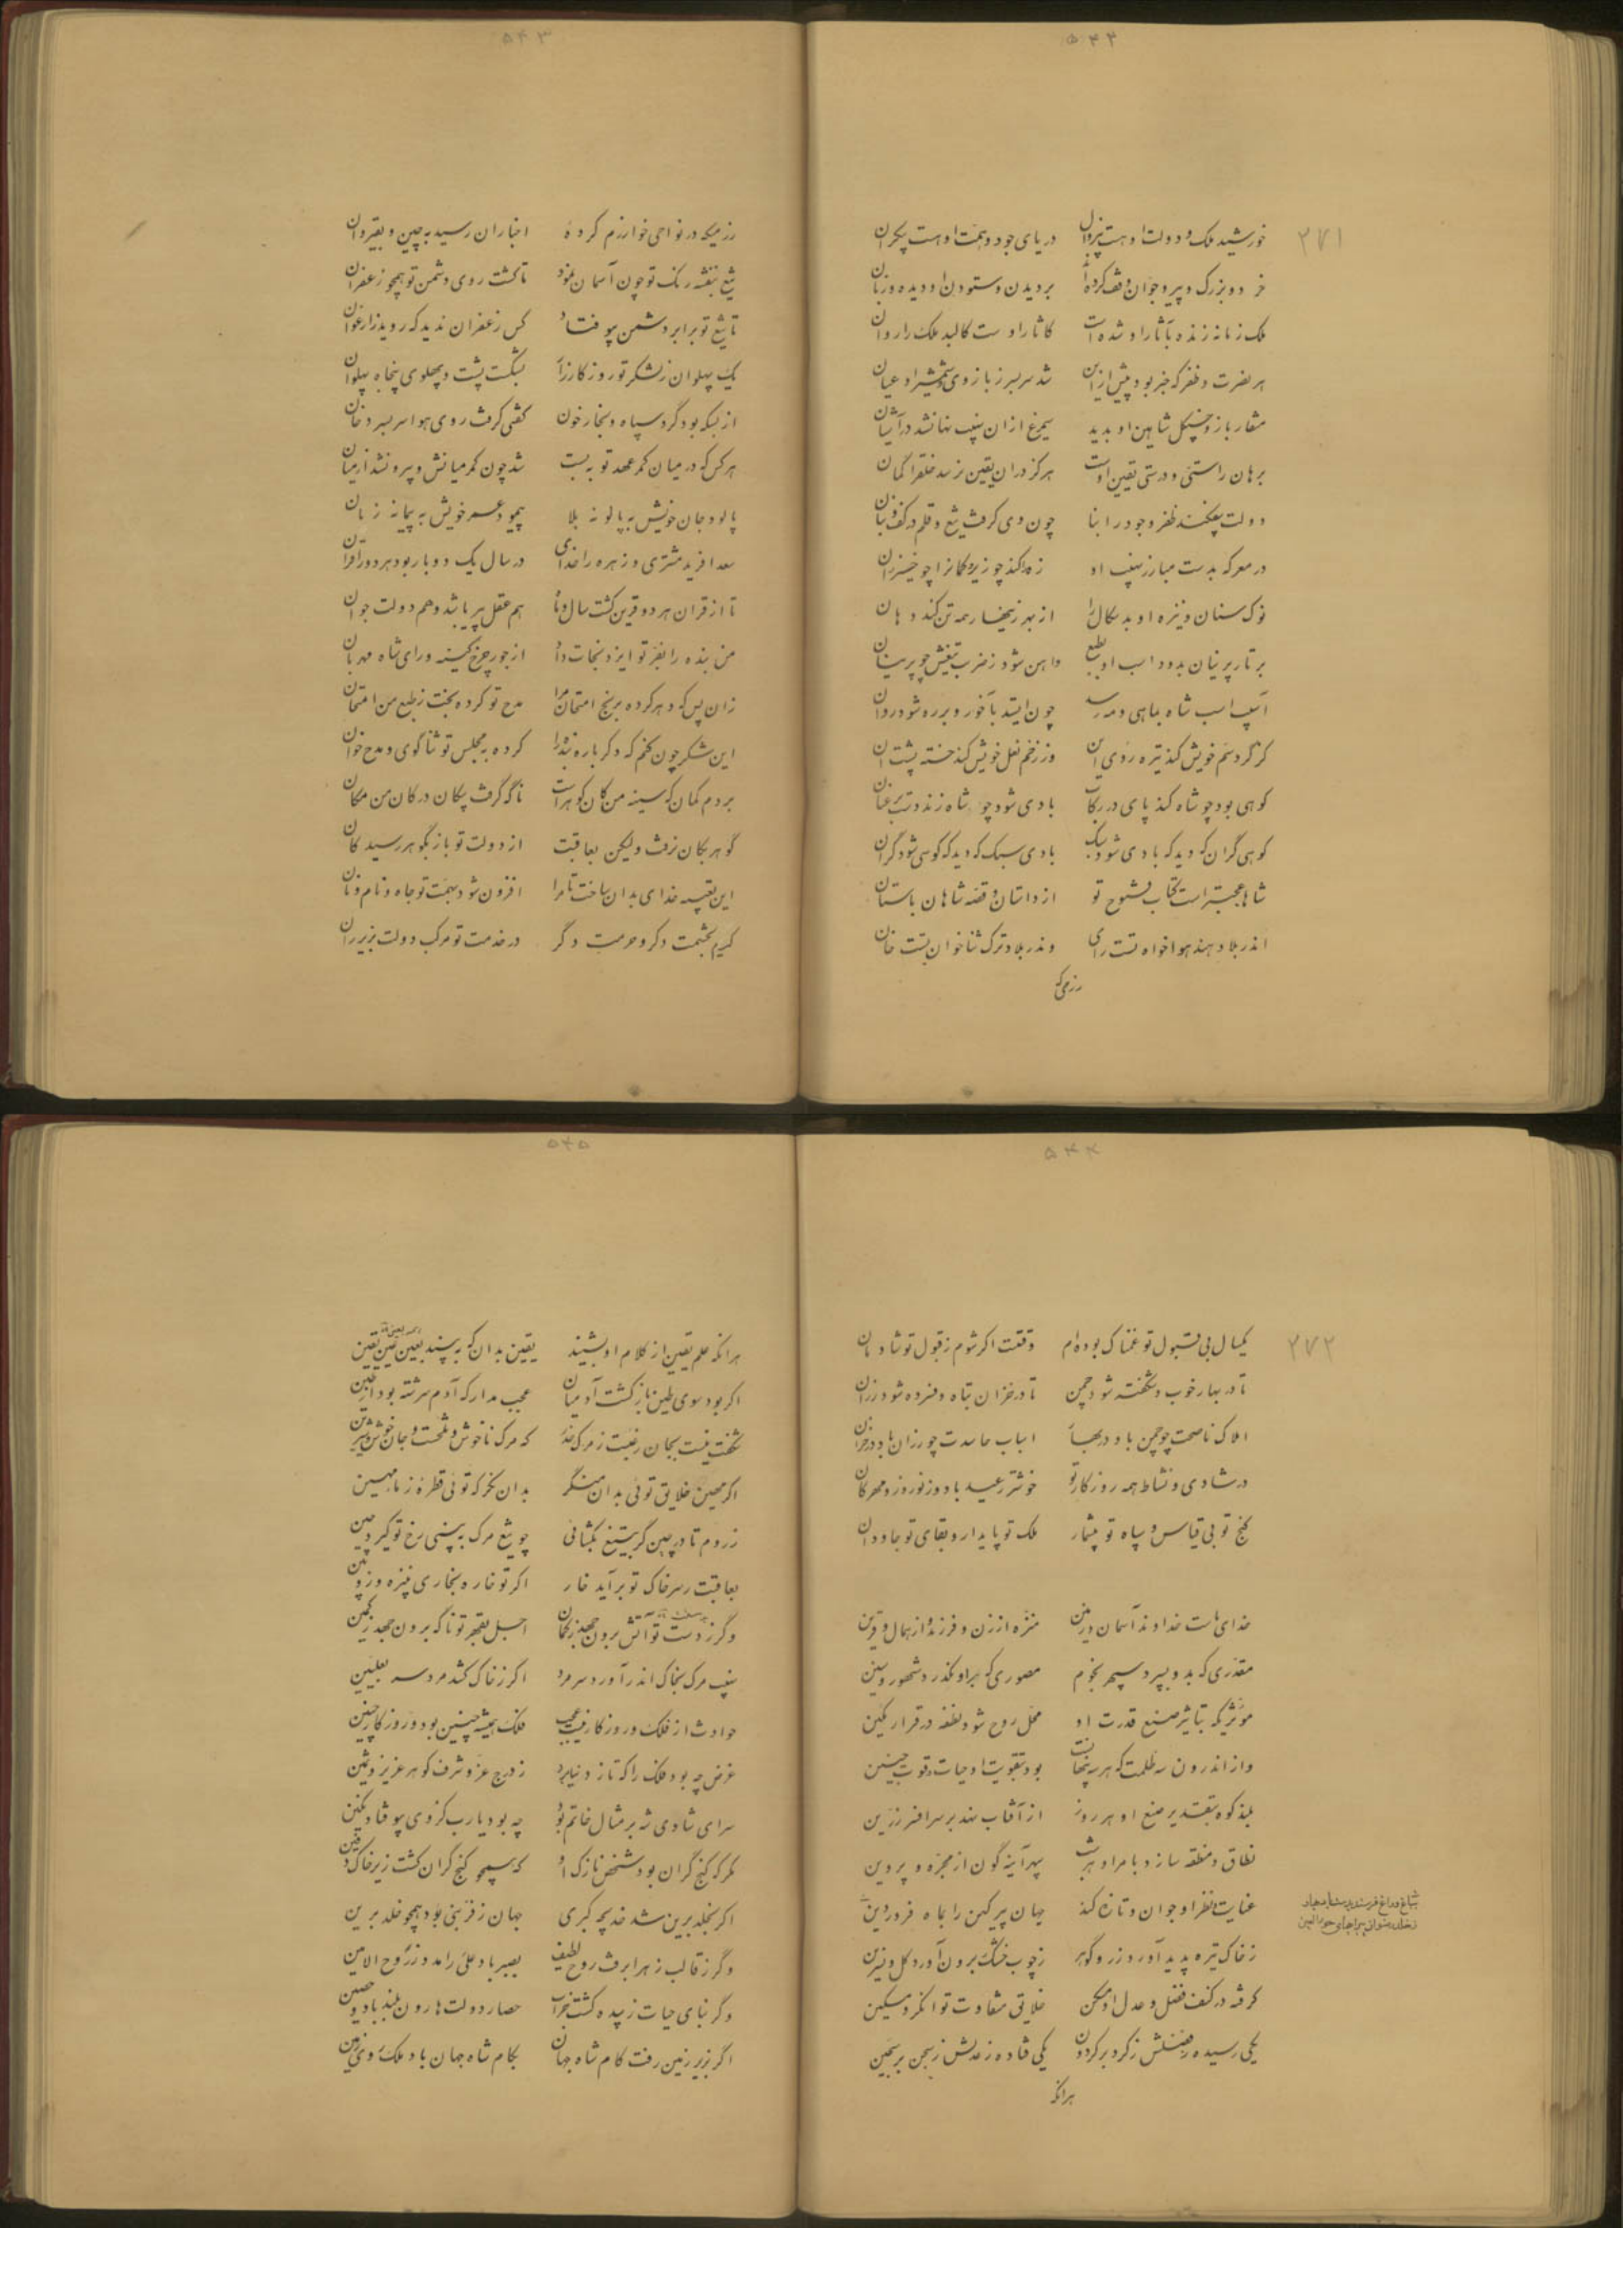 ۵۴۲
۲۷۱
خورشید ملک و دولت او هست بی زوال دریای جود و همت او هست بیکران
خرد و بزرگ و پیر و جوان وقف کرده اند بر دیدن و ستودن او دیده و زبان
ملک زمانه زنده بآثار او شده است کاثار اوست کالبد ملک را روان
هر نصرت و ظفر که خبر بود پیش ازین شد سر بسر ز بازوی و شمشیر او عیان
منقار باز و چنگل شاهین او بدید سیمرغ ازان نهیب نهان شد در آشیان
برهان راستی و درستی یقین اوست هرگز دران یقین نرسد خلق را گمان
دولت بیفکند ظفر و جود را بنا چون وی گرفت تیغ و قلم در کف و بنان
در معرکه بدست مبارز نهیب او زه را کند چو زیر و کمان را چو خیزران
نوک سنان و نیزه او بدسگال را از بهر زینهار همه تن کند دهان
بر تار پرنیان بدود اسب او بطبع واهن شود ز ضرب تیغش چو پرنیان
آسیب اسب شاه بماهی و مه رسد چون ایستد بآخور و بر ره شود روان
کز گرد سم خویش کند تیره روی این وز زخم نعل خویش کند خسته پشت آن
کوهی بود چو شاه کند پای در رکاب بادی شود چو شاه زند دست بر عنان
کوهی گران که دید که بادی شود سبک بادی سبک که دید که کوهی شود گران
شاها عجبتر است کتاب فتوح تو از داستان و قصه شاهان باستان
اندر بلاد هند هواخواه تست رای وندر بلاد ترک ثناخوان تست خان
رزمی که
۵۴۳
رزمیکه در نواحی خوارزم کرده اخبار ان رسید به چین و بقیروان
تیغ بنفشه رنگ تو چون آسمان نمود تا گشت روی دشمن تو همچو زعفران
تا تیغ تو برابر دشمن بیوفتاد کس زعفران ندید که روید ز ارغوان
یک پهلوان ز لشکر تو روز کارزار بشکست پشت و پهلوی پنجاه پهلوان
از بسکه بود گرد سپاه و بخار خون گفتی گرفت روی هوا سر بسر دخان
هر کس که در میان کمر عهد تو نبست شد چون کمر میانش و بیرون شد از میان
پالود جان خویش به پالونه بلا پیمود عمر خویش به پیمانه زمان
سعد افرید مشتری و زهره را خدای در سال یک دو بار بود هر دو را قران
تا از قران هر دو قرین گشت سال و ماه هم عقل پیر باشد و هم دولت جوان
من بنده را بفر تو ایزد نجات داد از جور چرخ کینه ور ای شاه مهربان
زان پس که دهر کرده برنج امتحان مرا مدح تو کرده بخت ز طبع من امتحان
این شکر چون کنم که دگر باره بنده را کرده به مجلس تو ثناگوی و مدح خوان
بردم گمان که سینه من کان گوهر است ناگه گرفت پیکان در کان من مکان
گوهر بکان نرفت ولیکن بعاقبت از دولت تو باز بگوهر رسید کان
این تعبیه خدای بدان ساخت تا مرا افزون شود بهمت تو جاه و نام و نان
گیرم بحشمت دگر و حرمت دگر در خدمت تو مرکب دولت بزیر ران
۵۴۴
۲۷۲
یکسال بی قبول تو غمناک بوده ام وقتست اگر شوم ز قبول تو شادمان
تا در بهار خوب و شکفته شود چمن تا در خزان تباه و فسرده شود رزان
املاک ناصحت چو چمن باد در بهار اسباب حاسدت چو رزان باد در خزان
در شادی و نشاط همه روزگار تو خوشتر ز عید باد و ز نوروز و مهرگان
گنج تو بی قیاس و سپاه تو بیشمار ملک تو پایدار و بقای تو جاودان
خدای هست خداوند آسمان و زمین منزه از زن و فرزند و از همال و قرین
مقدری که بدو بسپرد سپهر نجوم مصوری که بر او نگذرد شهور و سنین
مؤثریکه بتأثیر صنع قدرت او محل روح شود نطفه در قرار مکین
واز اندرون سه ظلمت که هر سه پنهانست بود بتقویت او حیات و قوت جنین
بلند کوه بتقدیر صنع او هر روز از آفتاب نهد بر سر افسر زرین
نطاق و منطقه سازد بامر او هر شب سپهر آینه گون از مجره و پروین
عنایت نظر او جوان و تازه کند جهان پیر کهن را بماه فروردین
ز خاک تیره پدید آورد زر و گوهر ز چوب خشک برون آورد گل و نسرین
گرفته در کنف فضل و عدل او مسکن خلایق متفاوت توانگر و مسکین
یکی رسیده ز فضلش ز گرد بر گردون یکی فتاده ز عدلش ز سجن بر سجین
هرانکه
۵۴۵
هرانکه علم یقین از کلام او بشنید یقین بدان که ببیند بعین عین یقین
اگر بود سوی طین بازگشت آدمیان عجب مدار که آدم سرشته بود از طین
شگفت نیست بجان رغبت ز مرگ حذر که مرگ ناخوش و تلخست و جان خوش و شیرین
اگر معین خلایق توئی بدان منگر بدان نگر که توئی قطره ز ماء مهین
ز روم تا در چین گر بتیغ بگشائی چو تیغ مرگ ببینی رخ تو گیرد چین
بعاقبت ز سر خاک تو برآید خار اگر تو خاره بخاری بنیزه و زوبین
وگر ز دست تو آتش برون جهد ز کمان اجل بقهر تو ناگه برون جهد ز کمین
نهیب مرگ بخاک اندر آورد سر مرد اگر ز خاک کشد مرد سر بعلیین
حوادث از فلک و روزگار نیست عجب فلک همیشه چنین بود و روزگار چنین
غرض چه بود فلک را که تا ز دنیا برد ز درج عز و شرف گوهر عزیز و ثمین
سرای شادی شه بر مثال خاتم بود چه بود یارب کز وی بیوفتاد نگین
مگر که گنج گران بود شخص نازک او که همچو گنج گران گشت زیر خاک دفین
اگر بخلد برین شد خدیجه کبری جهان ز فر نبی بود همچو خلد برین
وگر ز قالب زهرا برفت روح لطیف بصیر باد علی را مدد ز روح الامین
وگر بنای حیات زبیده گشت خراب حصار دولت هارون بلند باد و حصین
اگر بزیر زمین رفت کام شاه جهان بکام شاه جهان باد ملک روی زمین